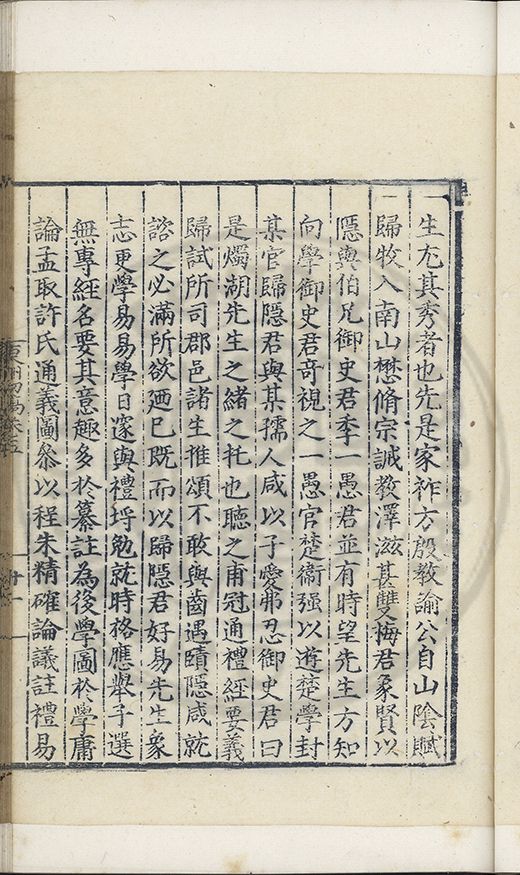 生尤其秀者也先是家祚方殷教諭公自山陰賦
歸牧入南山懋脩宗誠教澤滋甚雙梅君象賢以
隱與伯兄御史君季一愚君並有時望先生方知
向學御史君奇視之一愚官楚衛强以遊楚學封
某官歸隱君與某孺人咸以子愛弗忍御史君曰
是燭湖先生之緒之托也聽之甫冠通禮經要義
歸試所司郡邑諸生推頌不敢與齒遇賾隱咸就
諮之必滿所欲廼已既而以歸隱君好易先生象
志更學易易學日邃與禮埓勉就時格應舉子選
無專經名要其意趣多於纂註為後學圖於學庸
論孟取許氏通義圖叅以程朱精確論議註禮易